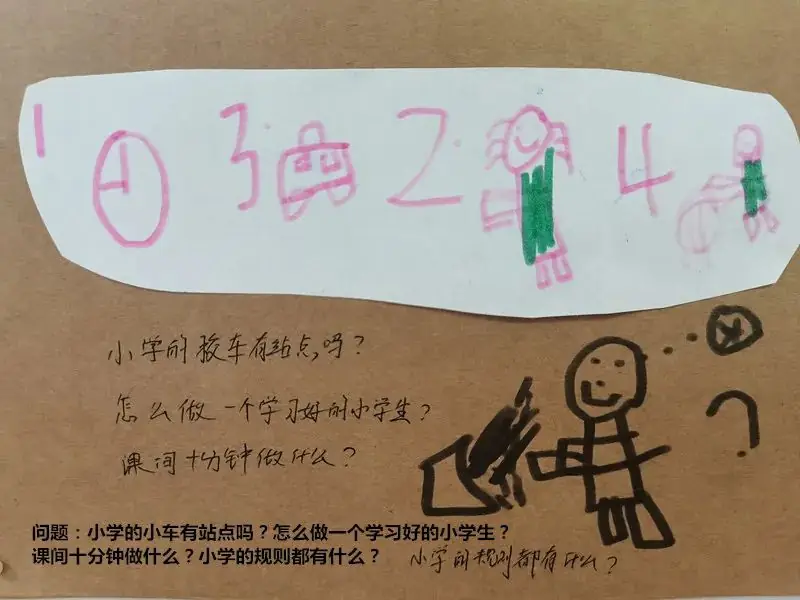 1 3 2 4
小学的校车有站点吗？
怎么做一个学习好的小学生？
课间十分钟做什么？
?
问题：小学的小车有站点吗？怎么做一个学习好的小学生？
课间十分钟做什么？小学的规则都有什么？
小学的规则都有什么？